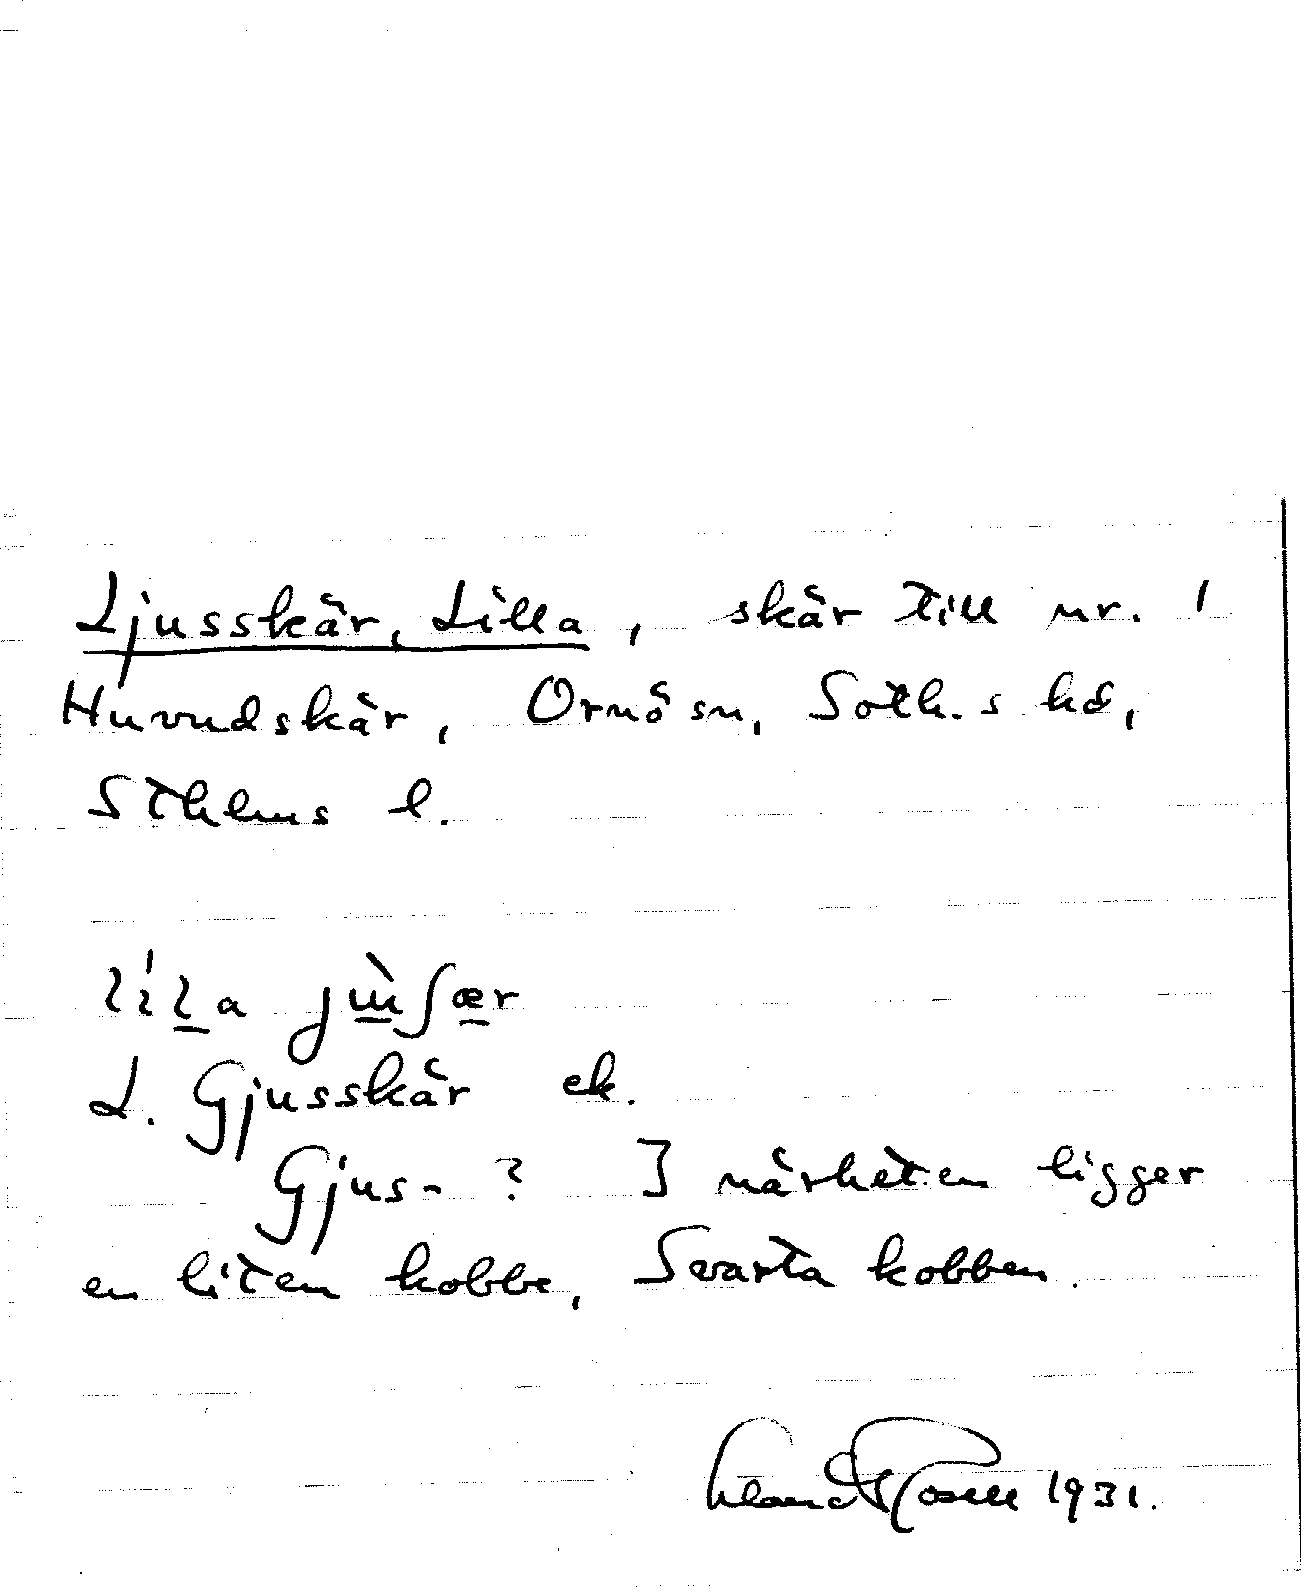 Ljusskär, Lilla, skär till nr. 1
Huvudskär, Ornö sn, Soth.s hd,
Sthlms l.
L. Gjusskär ek.
Gjus- ? I närheten ligger
en liten kobbe, Svarta kobben.
1931.